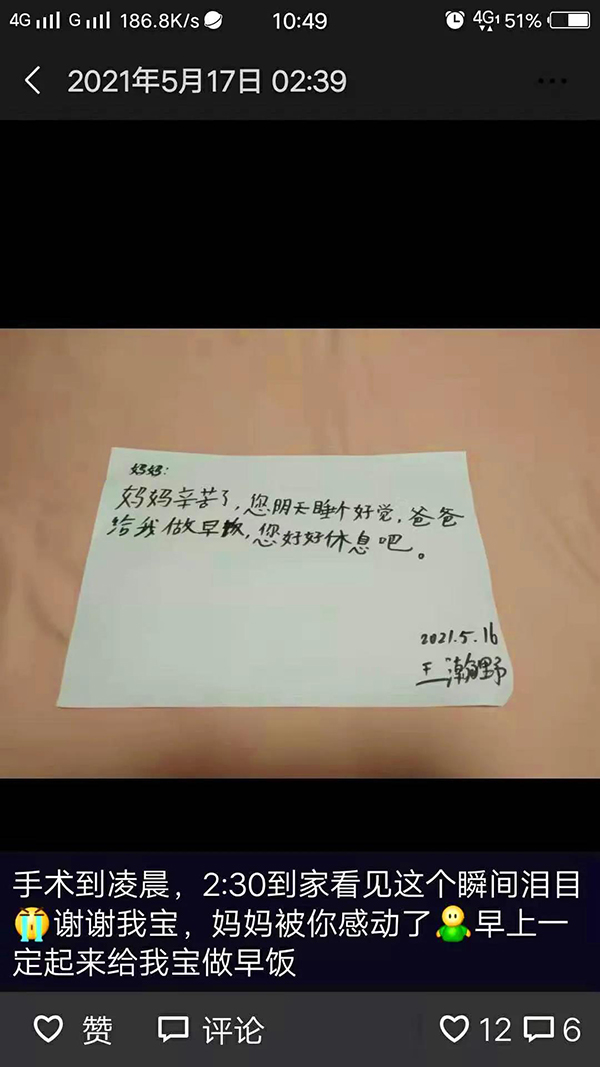 4G G 186.8K/s 10:49 4G 1 51%
2021年5月17日 02:39
妈妈:
妈妈辛苦了,您阴天睡个好觉,爸爸
给我做早饭,您好好休息吧。
2021.5.16
王瀚野
手术到凌晨，2:30到家看见这个瞬间泪目
😭谢谢我宝，妈妈被你感动了早上一
定起来给我宝做早饭
赞 评论 12 6